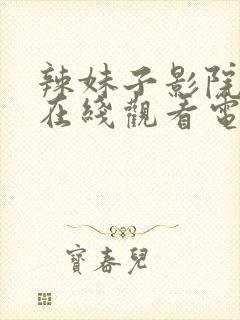 辣妹子影院
在綫觀看電
寶春兒